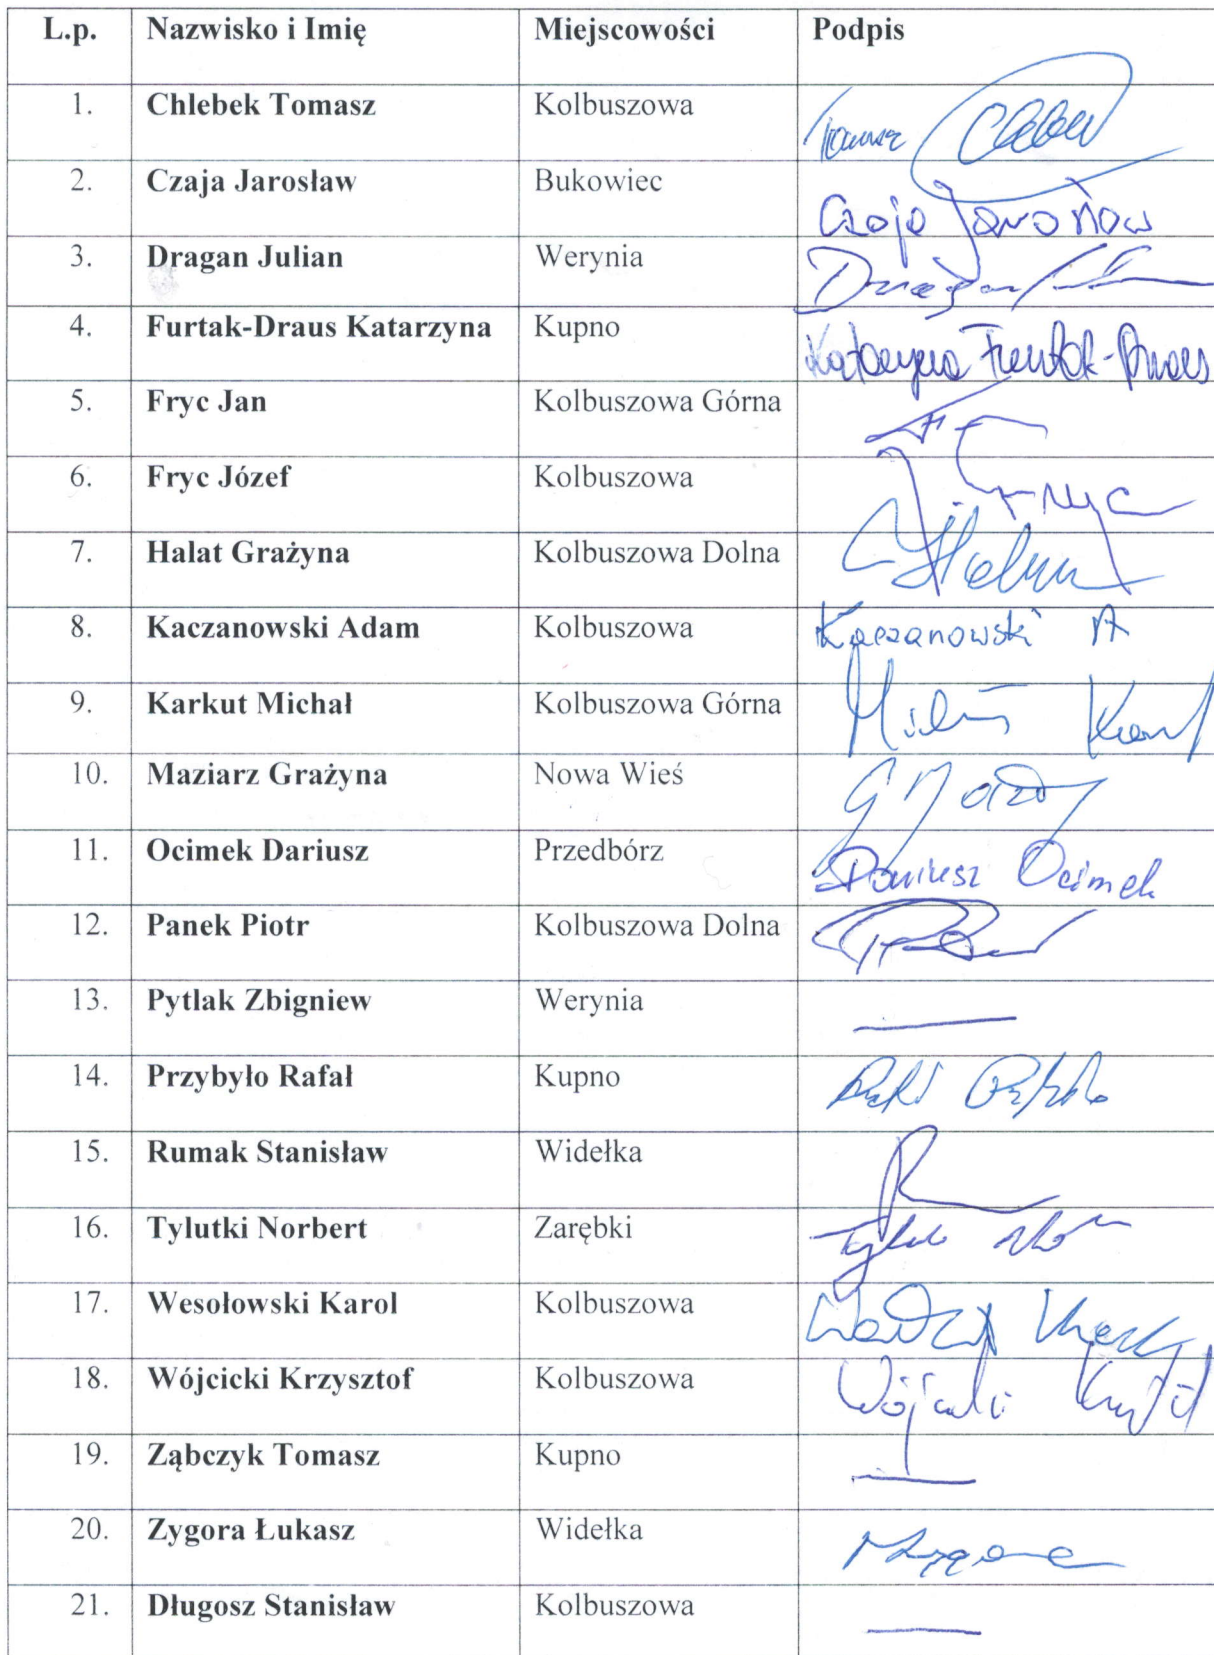 L.p. Nazwisko i Imię Miejscowości Podpis
1. Chlebek Tomasz Kolbuszowa Tomasz
2. Czaja Jarosław Bukowiec Czaja Jarosław
3. Dragan Julian Werynia Dragan
4. Furtak-Draus Katarzyna Kupno Katarzyna Furtak-Draus
5. Fryc Jan Kolbuszowa Górna
6. Fryc Józef Kolbuszowa Fryc
7. Halat Grażyna Kolbuszowa Dolna
8. Kaczanowski Adam Kolbuszowa Kaczanowski A
9. Karkut Michał Kolbuszowa Górna
10. Maziarz Grażyna Nowa Wieś
11. Ocimek Dariusz Przedbórz Dariusz Ocimek
12. Panek Piotr Kolbuszowa Dolna
13. Pytlak Zbigniew Werynia
14. Przybyło Rafał Kupno
15. Rumak Stanisław Widełka
16. Tylutki Norbert Zarębki
17. Wesołowski Karol Kolbuszowa
18. Wójcicki Krzysztof Kolbuszowa
19. Ząbczyk Tomasz Kupno
20. Zygora Łukasz Widełka
21. Długosz Stanisław Kolbuszowa